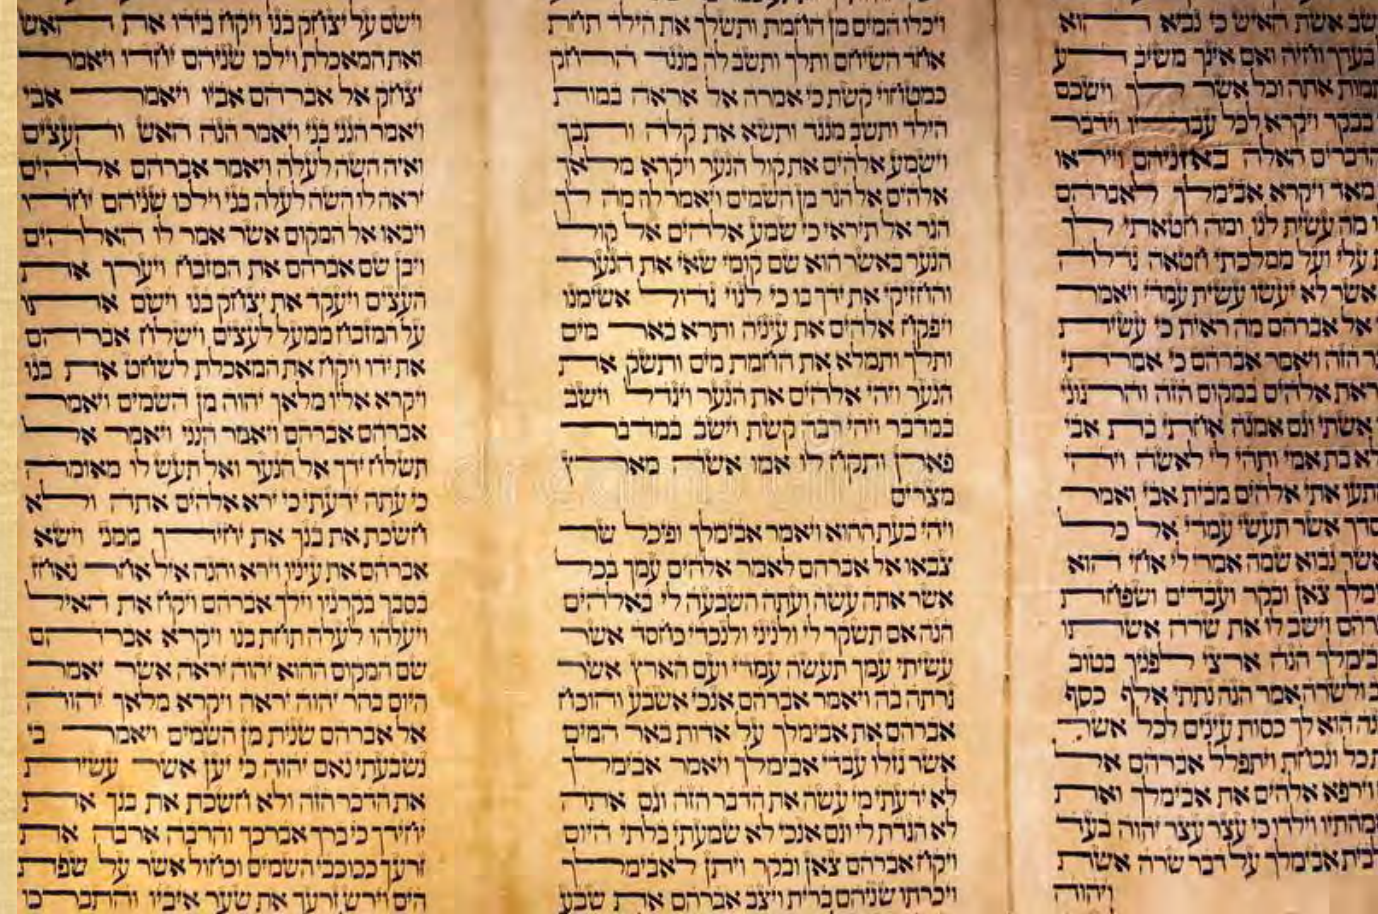 שב אשת האיש כי נביא הוא
בעדך וחיה ואם אינך משיב דע
תמות אתה וכל אשר לך וישכם
בבקר ויקרא לכל עבדיו וידבר
הדברים האלה באזניהם וייראו
מאד ויקרא אבימלך לאברהם
ו מה עשית לנו ומה חטאתי לך
ת עלי ועל ממלכתי חטאה גדלה
אשר לא יעשו עשית עמדי ויאמר
אל אברהם מה ראית כי עשית
בר הזה ויאמר אברהם כי אמרתי
ראת אלהים במקום הזה והרגוני
אשתי וגם אמנה אחתי בת אבי
לא בת אמי ותהי לי לאשה ויהי
התעו אתי אלהים מבית אבי ואמר
סדך אשר תעשי עמדי אל כל
אשר נבוא שמה אמרי לי אחי הוא
ימלך צאן ובקר ועבדים ושפחת
רהם וישב לו את שרה אשתו
בימלך הנה ארצי לפניך בטוב
ב ולשרה אמר הנה נתתי אלף כסף
נה הוא לך כסות עינים לכל אשר
תכל ונכחת ויתפלל אברהם אל
וירפא אלהים את אבימלך ואת
אמהתיו וילדו כי עצר עצר יהוה בעד
לבית אבימלך על דבר שרה אשת
ויהוה
ויכלו המים מן החמת ותשלך את הילד תחת
אחד השיחם ותלך ותשב לה מנגד הרחק
כמטחוי קשת כי אמרה אל אראה במות
הילד ותשב מנגד ותשא את קלה ותבך
וישמע אלהים את קול הנער ויקרא מלאך
אלהים אל הגר מן השמים ויאמר לה מה לך
הגר אל תיראי כי שמע אלהים אל קול
הנער באשר הוא שם קומי שאי את הנער
והחזיקי את ידך בו כי לגוי גדול אשימנו
ויפקח אלהים את עיניה ותרא באר מים
ותלך ותמלא את החמת מים ותשק את
הנער ויהי אלהים את הנער ויגדל וישב
במדבר ויהי רבה קשת וישב במדבר
פארן ותקח לו אמו אשה מארץ
מצרים
ויהי בעת ההוא ויאמר אבימלך ופיכל שר
צבאו אל אברהם לאמר אלהים עמך בכל
אשר אתה עשה ועתה השבעה לי באלהים
הנה אם תשקר לי ולניני ולנכדי כחסד אשר
עשיתי עמך תעשה עמדי ועם הארץ אשר
גרתה בה ויאמר אברהם אנכי אשבע והוכח
אברהם את אבימלך על אדות באר המים
אשר גזלו עבדי אבימלך ויאמר אבימלך
לא ידעתי מי עשה את הדבר הזה וגם אתה
לא הגדת לי וגם אנכי לא שמעתי בלתי היום
ויקח אברהם צאן ובקר ויתן לאבימלך
ויכרתו שניהם ברית ויצב אברהם את שבע
וישם על יצחק בנו ויקח בידו את האש
ואת המאכלת וילכו שניהם יחדו ויאמר
יצחק אל אברהם אביו ויאמר אבי
ויאמר הנני בני ויאמר הנה האש והעצים
ואיה השה לעלה ויאמר אברהם אלהים
יראה לו השה לעלה בני וילכו שניהם יחדו
ויבאו אל המקום אשר אמר לו האלהים
ויבן שם אברהם את המזבח ויערך את
העצים ויעקד את יצחק בנו וישם אתו
על המזבח ממעל לעצים וישלח אברהם
את ידו ויקח את המאכלת לשחט את בנו
ויקרא אליו מלאך יהוה מן השמים ויאמר
אברהם אברהם ויאמר הנני ויאמר אל
תשלח ידך אל הנער ואל תעש לו מאומה
כי עתה ידעתי כי ירא אלהים אתה ולא
חשכת את בנך את יחידך ממני וישא
אברהם את עיניו וירא והנה איל אחר נאחז
בסבך בקרניו וילך אברהם ויקח את האיל
ויעלהו לעלה תחת בנו ויקרא אברהם
שם המקום ההוא יהוה יראה אשר יאמר
היום בהר יהוה יראה ויקרא מלאך יהוה
אל אברהם שנית מן השמים ויאמר בי
נשבעתי נאם יהוה כי יען אשר עשית
את הדבר הזה ולא חשכת את בנך את
יחידך כי ברך אברכך והרבה ארבה את
זרעך ככוכבי השמים וכחול אשר על שפת
הים וירש זרעך את שער איביו והתברכו